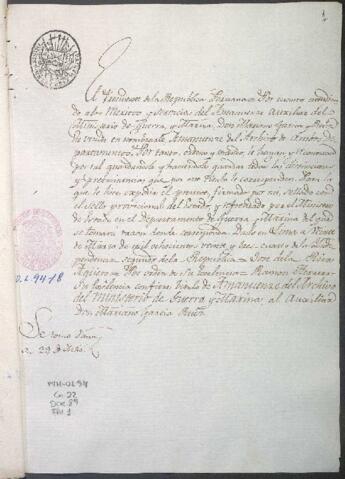 El Presidente de la República Peruana = Por cuanto atendiendo
al Merito y servicios del Amanuense Auxiliar del
Ministerio de Guerra, y Marina, Don Mariano Garcia
he venido en nombrarle Amanuense del Archivo de
Por tanto: ordeno y mando, le hayan y tengan
por tal guardandole y haciendole guardar todas las distinciones
y preeminencias que por esta Plaza le corresponden. Para lo
que le hice expedir el presente, firmado por mi, sellado con
el sello provisional del Estado, y refrendado por el Ministro
de Estado en el Departamento de Guerra y Marina del qual
se tomará razon donde corresponda. Dado en Lima a
de Marzo de mil ochocientos veinte y tres, cuarto de la Inde-
pendencia segundo de la República = Jose de la Riva
Aguero = Por orden de Su Excelencia = Ramon Herrera =
Su Excelencia confiere titulo de Amanuense del Archivo
del Ministerio de Guerra y Marina, al Auxiliar
Don Mariano Garcia
Se tomo
O.L. 94-18
MH-OL 94
Ca. 22
Doc. 89
Fol. 1